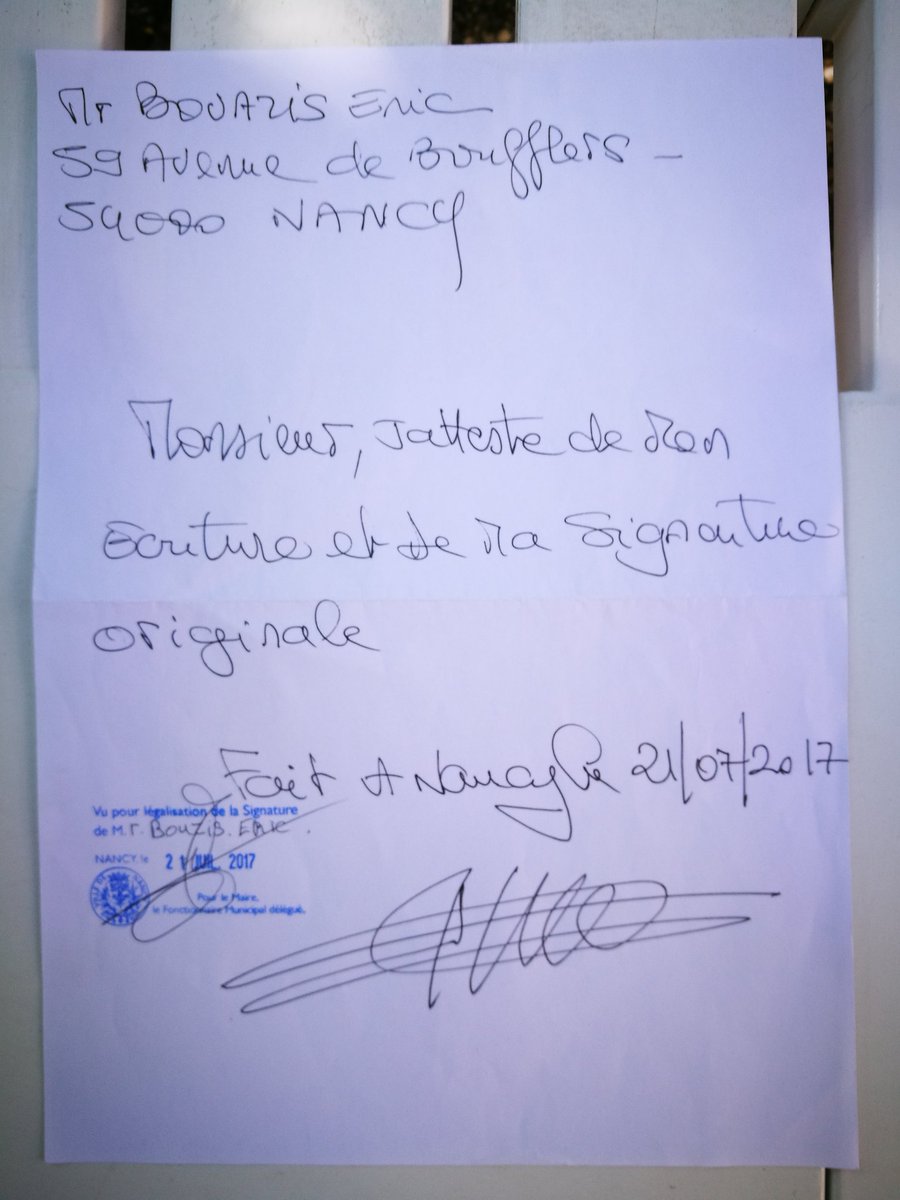 Mr BOUAZIS Eric
59 Avenue de Boufflers -
54000 NANCY
Monsieur, J'atteste de Mon
Ecriture et de Ma Signature
originale
Fait A Nancy le 21/07/2017
Vu pour légalisation de la Signature
de M.r. BOUZIS. ERIC.
NANCY, le 21 JUIL. 2017
Pour le Maire,
le Fonctionnaire Municipal délégué,
VILLE DE NANCY